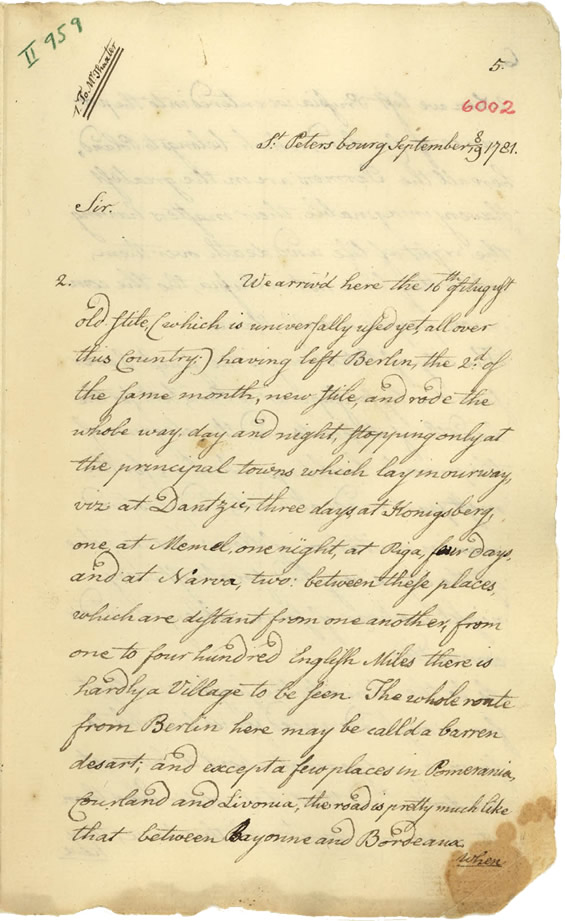 II 959
1. To. Mr. Thaxter
5.
6002
St. Petersbourg September 8/19 1781.
Sir.
2. We arriv'd here the 16th. of August
old stile, (which is universally used yet, all over
this Country:) having left Berlin, the 2d. of
the same month, new stile, and rode the
whole way, day and night, stopping only at
the principal towns which lay in our way,
viz at Dantzic, three days, at Konigsberg,
one, at Memel, one night, at Riga, four days,
and at Narva, two: between these places,
which are distant from one another, from
one to four hundred English Miles there is
hardly a Village to be seen. The whole route
from Berlin here may be call'd a barren
desart; and except a few places in Pomerania,
Courland and Livonia, the road is pretty much like
that between Bayonne and Bordeaux.
when